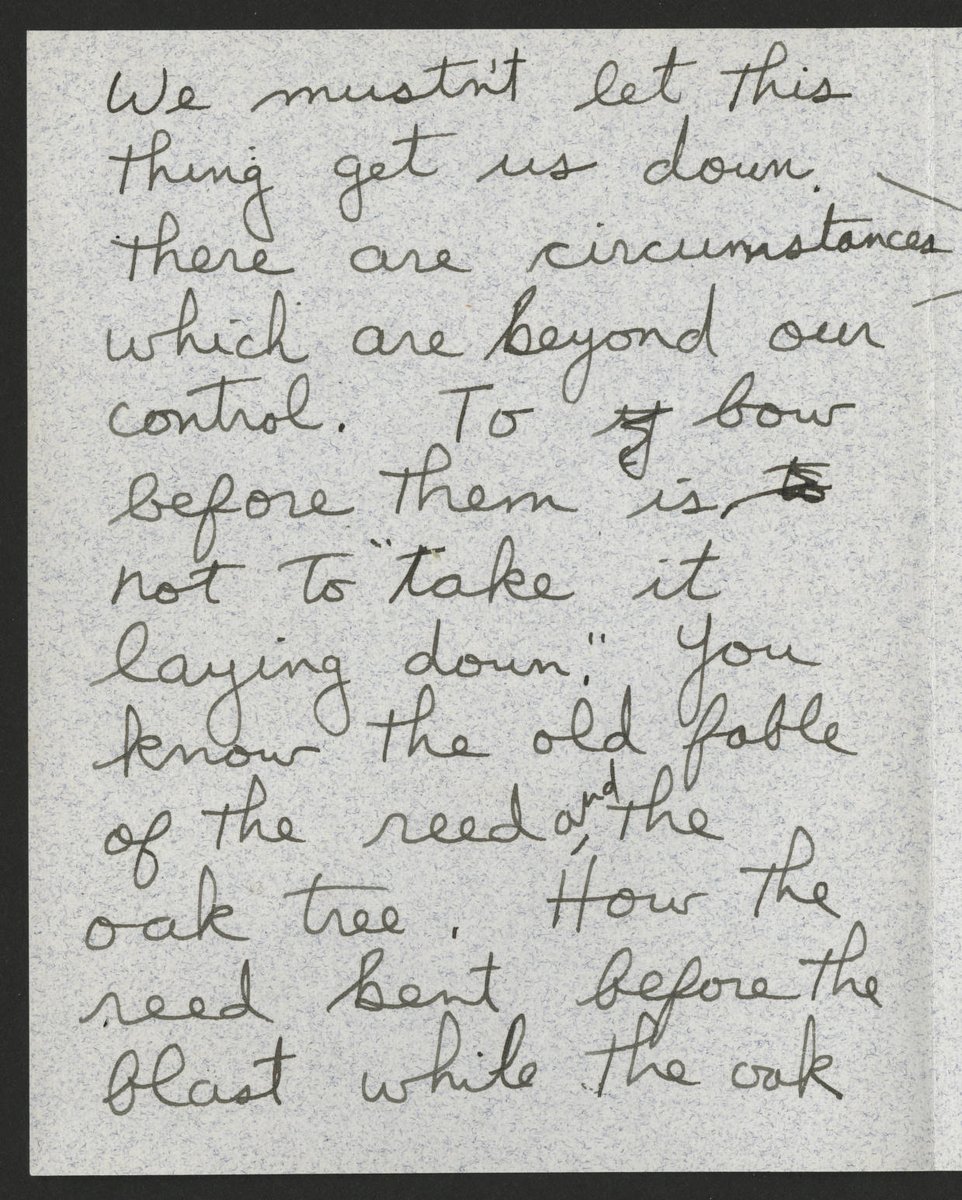 We mustn't let this
thing get us down.
There are circumstances
which are beyond our
control. To bow
before them is
not to "take it
laying down." You
know the old fable
of the reed and the
oak tree. How the
reed bent before the
blast while the oak